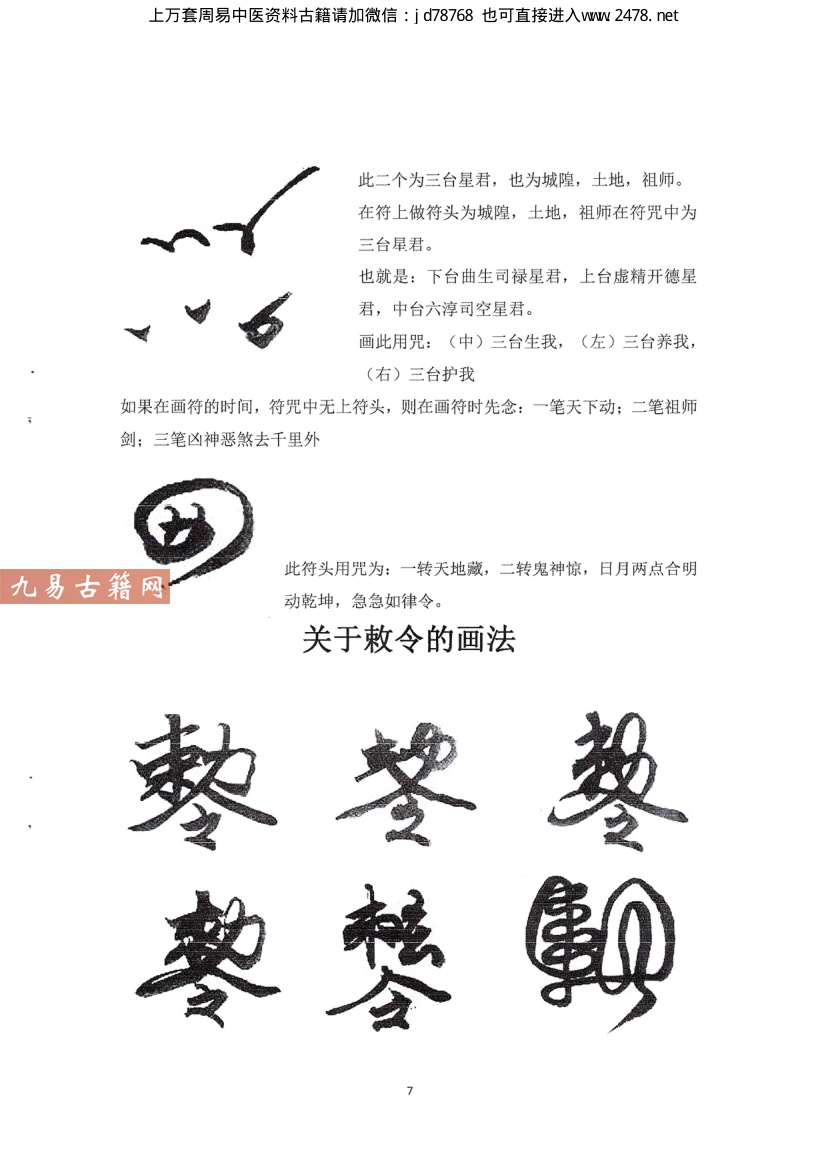 上万套周易中医资料古籍请加微信：jd78768 也可直接进入www.2478.net
此二个为三台星君，也为城隍，土地，祖师。
在符上做符头为城隍，土地，祖师在符咒中为
三台星君。
也就是：下台曲生司禄星君，上台虚精开德星
君，中台六淳司空星君。
画此用咒：（中）三台生我，（左）三台养我，
（右）三台护我
如果在画符的时间，符咒中无上符头，则在画符时先念：一笔天下动；二笔祖师
剑；三笔凶神恶煞去千里外
九易古籍网
此符头用咒为：一转天地藏，二转鬼神惊，日月两点合明
动乾坤，急急如律令。
关于敕令的画法
7